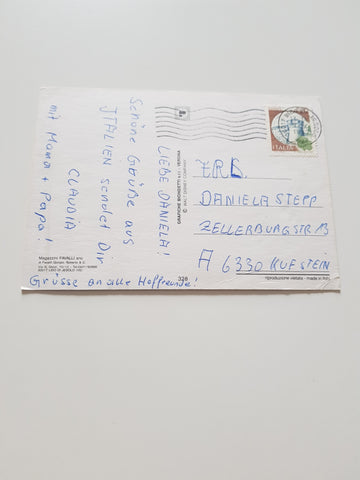 LIEBE DANIELA!
Schöne Grüße aus
ITALIEN sendet Dir
CLAUDIA
mit Mama + Papa!
Grüsse an alle Hoffreunde!
FRL.
DANIELA STEPP
ZELLERBURGSTR. 13
A 6330 KUFSTEIN
ITALIA
GRAFICHE BIONDETTI s.r.l. - VERONA
© WALT DISNEY COMPANY
Magazzini FAVALLI snc
328
riproduzione vietata - made in Italy